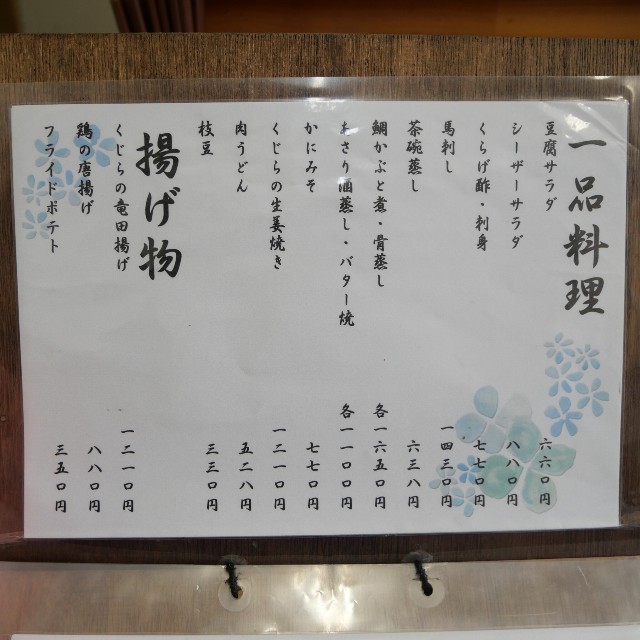 一品料理
豆腐サラダ 六六〇円
シーザーサラダ 八八〇円
くらげ酢・刺身 七七〇円
馬刺し 一四三〇円
茶碗蒸し 六三八円
鯛かぶと煮・骨蒸し 各一六五〇円
あさり酒蒸し・バター焼 各一一〇〇円
かにみそ 七七〇円
くじらの生姜焼き 一二一〇円
肉うどん 五二八円
枝豆 三三〇円
揚げ物
くじらの竜田揚げ 一二一〇円
鶏の唐揚げ 八八〇円
フライドポテト 三五〇円